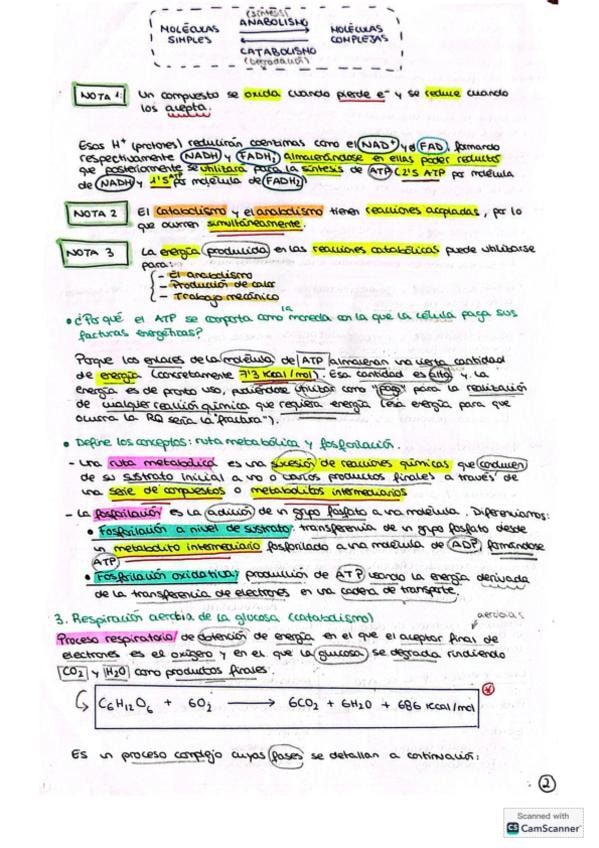 (SÍNTESIS)
MOLÉCULAS SIMPLES
ANABOLISMO
MOLÉCULAS COMPLEJAS
CATABOLISMO
(Degradación)
NOTA 1: Un compuesto se oxida cuando pierde e⁻ y se reduce cuando
los acepta.
Esos H⁺ (protones) reducirán coenzimas como el NAD⁺ y el FAD, formando
respectivamente NADH y FADH₂, almacenándose en ellas poder reductor
que posteriormente se utilizará para la síntesis de ATP (2'5 ATP por molécula
de NADH y 1'5 ATP por molécula de FADH₂)
NOTA 2 El catabolismo y el anabolismo tienen reacciones acopladas, por lo
que ocurren simultáneamente.
NOTA 3 La energía producida en las reacciones catabólicas puede utilizarse
para:
- El anabolismo
- Producción de calor
- Trabajo mecánico
• ¿Por qué el ATP se comporta como la moneda con la que la célula paga sus
facturas energéticas?
Porque los enlaces de la molécula de ATP almacenan una cierta cantidad
de energía (concretamente 7'3 Kcal/mol). Esa cantidad es alta y la
energía es de pronto uso, pudiéndose utilizar como "pago" para la realización
de cualquier reacción química que requiera energía (esa energía para que
ocurra la RQ sería la "factura").
• Define los conceptos: ruta metabólica y fosforilación.
- Una ruta metabólica es una sucesión de reacciones químicas que conducen
de su sustrato inicial a uno o varios productos finales a través de
una serie de compuestos o metabolitos intermediarios
- La fosforilación es la adición de un grupo fosfato a una molécula. Diferenciamos:
• Fosforilación a nivel de sustrato: transferencia de un grupo fosfato desde
un metabolito intermediario fosforilado a una molécula de ADP formándose
ATP
• Fosforilación oxidativa: producción de ATP usando la energía derivada
de la transferencia de electrones en una cadena de transporte.
3. Respiración aerobia de la glucosa (catabolismo)
aerobias
Proceso respiratorio de obtención de energía en el que el aceptor final de
electrones es el oxígeno y en el que la glucosa se degrada, rindiendo
CO₂ y H₂O como productos finales:
C₆H₁₂O₆ + 6O₂ → 6CO₂ + 6H₂O + 686 Kcal/mol
Es un proceso complejo cuyas fases se detallan a continuación:
2
Scanned with
CS CamScanner